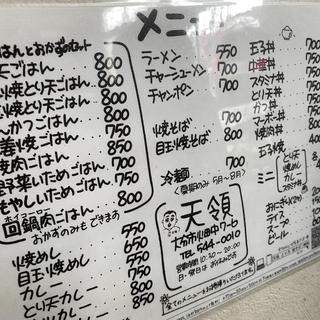 メニュー
ごはんとおかずのセット
天ごはん 800
焼とり天ごはん 800
とり天ごはん 800
かつごはん 800
生姜焼ごはん 750
焼肉ごはん 700
野菜いためごはん 700
もやしいためごはん 750
ホイコーロー
回鍋肉ごはん 850
おかずのみもできます
焼めし 550
目玉焼めし 650
カレー 550
とり天カレー 750
カレー 850
ラーメン 550
チャーシューメン 700
チャンポン 700
焼そば 700
目玉焼そば 800
冷麺 700
(夏期のみ 5月〜8月)
天領
544-0010
営業時間 10:30〜20:00
日・祭日はお休みです
玉子丼
中華丼
スタミナ丼
とり天丼
カツ丼
マーボー丼
焼肉丼
玉子焼
ミニ
とり天
焼めし
カレー
スタミナ丼
おにぎり(2ケ)
ライス
スープ
ビール